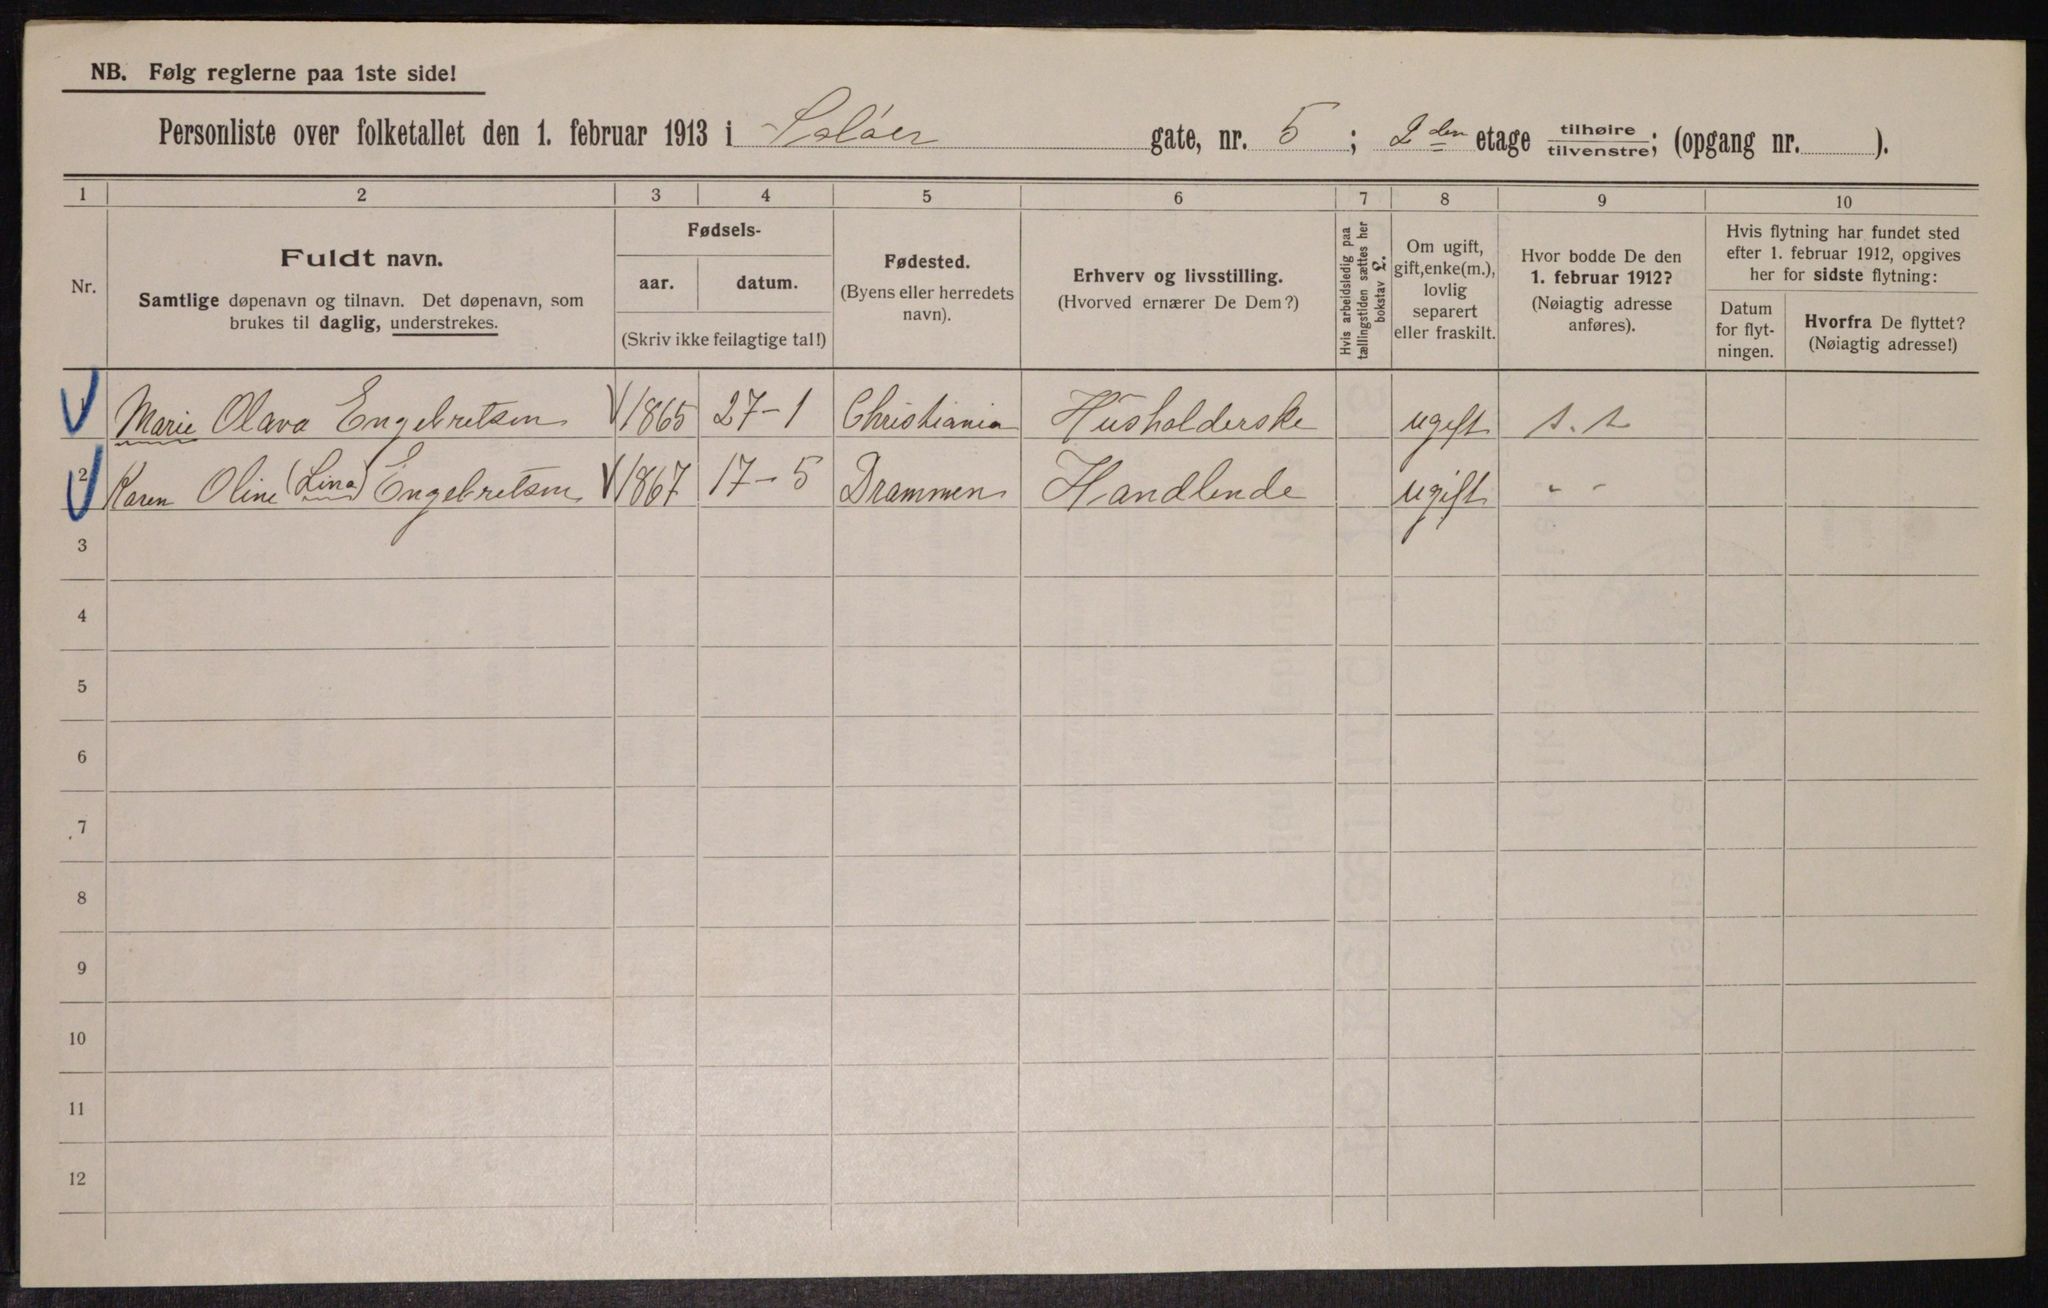 NB. Følg reglerne paa 1ste side!
Personliste over folketallet den 1. februar 1913 i Soløer gate, nr. 5; 2den etage tilhøire tilvenstre; (opgang nr. ).
1 2 3 4 5 6 7 8 9 10
Nr.
Fuldt navn.
Samtlige døpenavn og tilnavn. Det døpenavn, som
brukes til daglig, understrekes.
Fødsels-
aar. datum.
(Skriv ikke feilagtige tal!)
Fødested.
(Byens eller herredets
navn).
Erhverv og livsstilling.
(Hvorved ernærer De Dem?)
Hvis arbeidsledig paa
tællingstiden sættes her
bokstav L.
Om ugift,
gift, enke(m.),
lovlig
separert
eller fraskilt.
Hvor bodde De den
1. februar 1912?
(Nøiagtig adresse
anføres).
Hvis flytning har fundet sted
efter 1. februar 1912, opgives
her for sidste flytning:
Datum
for flyt-
ningen.
Hvorfra De flyttet?
(Nøiagtig adresse!)
1 Marie Olava Engebretsen 1865 27-1 Christiania Husholderske ugift s. s
2 Karen Oline (Lina) Engebretsen 1867 17-5 Drammen Handlende ugift - -
3
4
5
6
7
8
9
10
11
12